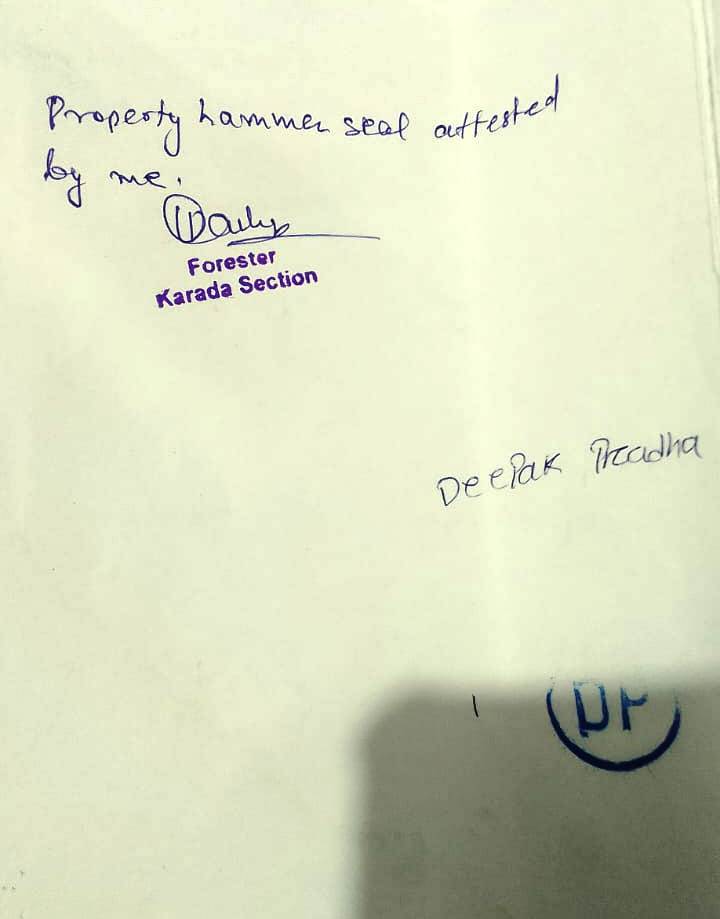 Property hammer seal attested
by me.
Forester
Karada Section
Deepak Pradha
DP